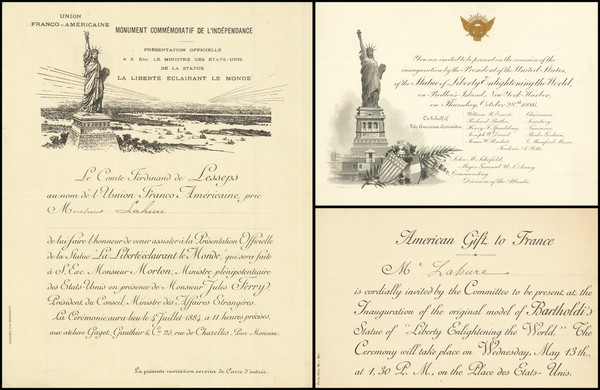 UNION
FRANCO-AMÉRICAINE
MONUMENT COMMÉMORATIF DE L'INDÉPENDANCE
PRÉSENTATION OFFICIELLE
A S. EXC. LE MINISTRE DES ÉTATS-UNIS
DE LA STATUE
LA LIBERTÉ ÉCLAIRANT LE MONDE
Le Comte Ferdinand de Lesseps
au nom de l'Union Franco Américaine, prie
Monsieur Lahure
de lui faire l'honneur de venir assister à la Présentation Officielle
de la Statue "La Liberté éclairant le Monde", qui sera faite
à S. Exc. Monsieur Morton, Ministre plénipotentiaire
des Etats Unis en présence de Monsieur Jules Ferry,
Président du Conseil Ministre des Affaires Etrangères.
La Cérémonie aura lieu le 4 Juillet 1884, à 11 heures précises,
aux ateliers Gaget, Gauthier & Cie 25, rue de Chazelles, Parc Monceau.
La présente invitation servira de Carte d'entrée.
You are invited to be present on the occasion of the
inauguration by the President of the United States,
of the Statue of Liberty Enlightening the World,
on Bedloe's Island, New York Harbor,
on Thursday, October 28th 1886.
On behalf of
The American Committee.
William M. Evarts, Chairman
Richard Butler, Secretary
Henry F. Spaulding, Treasurer
Joseph W. Drexel, Parke Godwin,
James W. Pinchot, V. Mumford Moore
Frederic A. Potts.
John M. Schofield
Major General U.S. Army
Commanding
Division of the Atlantic.
American Gift to France
Mr Lahure
is cordially invited by the Committee to be present at the
Inauguration of the original model of Bartholdi's
Statue of "Liberty Enlightening the World." The
Ceremony will take place on Wednesday, May 13th.,
at 1,30 P. M., on the Place des Etats-Unis.